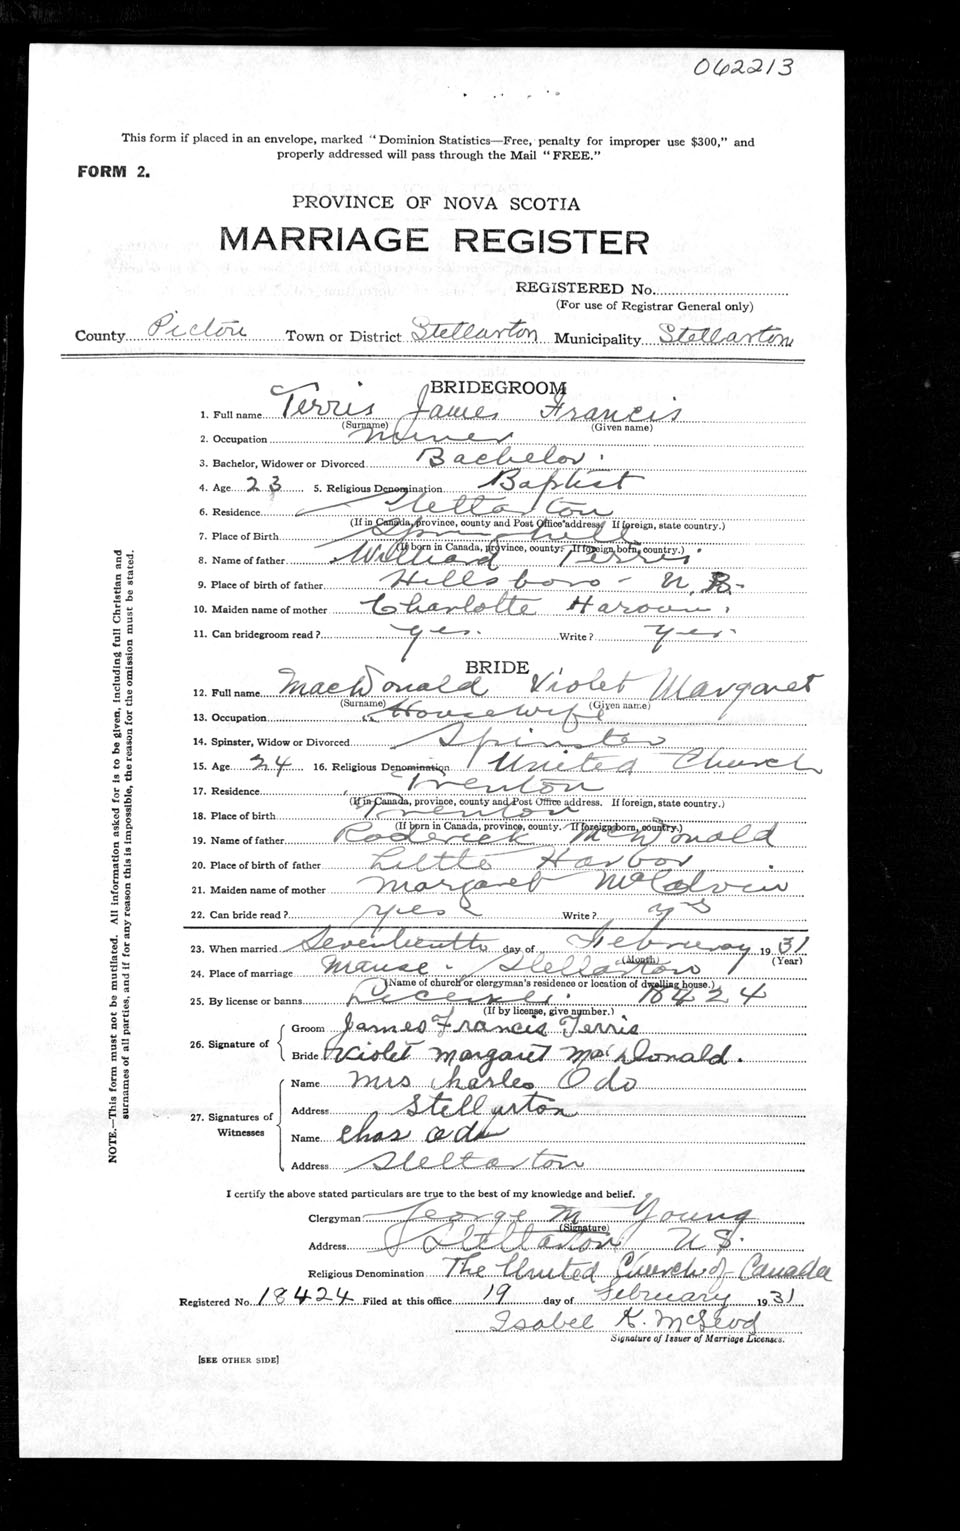 062213
This form if placed in an envelope, marked "Dominion Statistics—Free, penalty for improper use $300," and
properly addressed will pass through the Mail "FREE."
FORM 2.
PROVINCE OF NOVA SCOTIA
MARRIAGE REGISTER
REGISTERED No.
(For use of Registrar General only)
County Pictou Town or District Stellarton Municipality Stellarton
BRIDEGROOM
1. Full name Terris James Francis
(Surname) (Given name)
2. Occupation miner
3. Bachelor, Widower or Divorced Bachelor.
4. Age 23 5. Religious Denomination Baptist
6. Residence Stellarton
(If in Canada, province, county and Post Office address. If foreign, state country.)
7. Place of Birth Springhill
(If born in Canada, province, county. If foreign born, country.)
8. Name of father William Terris
9. Place of birth of father Hillsboro - N.B.
10. Maiden name of mother Charlotte
11. Can bridegroom read? yes. Write? yes
BRIDE
12. Full name MacDonald Violet Margaret
(Surname) (Given name)
13. Occupation Housewife
14. Spinster, Widow or Divorced Spinster
15. Age 24 16. Religious Denomination United Church
17. Residence Trenton
(If in Canada, province, county and Post Office address. If foreign, state country.)
18. Place of birth Trenton
(If born in Canada, province, county. If foreign born, country.)
19. Name of father Roderick McDonald
20. Place of birth of father Little Harbor
21. Maiden name of mother Margaret
22. Can bride read? yes Write? yes
23. When married Seventeenth day of February 1931
(Month) (Year)
24. Place of marriage Manse - Stellarton
(Name of church or clergyman's residence or location of dwelling house.)
25. By license or banns License. 18424
(If by license, give number.)
26. Signature of
Groom James Francis Terris
Bride Violet Margaret MacDonald.
27. Signatures of
Witnesses
Name Mrs Charles Odo
Address Stellarton
Name Chas Odo
Address Stellarton
I certify the above stated particulars are true to the best of my knowledge and belief.
Clergyman George M Young
(Signature)
Address Stellarton N.S.
Religious Denomination The United Church of Canada
Registered No. 18424 Filed at this office 19 day of February 1931
Isabel K. McLeod
Signature of Issuer of Marriage Licenses.
[SEE OTHER SIDE]
NOTE.—This form must not be mutilated. All information asked for is to be given, including full Christian and
surnames of all parties, and if for any reason this is impossible, the reason for the omission must be stated.